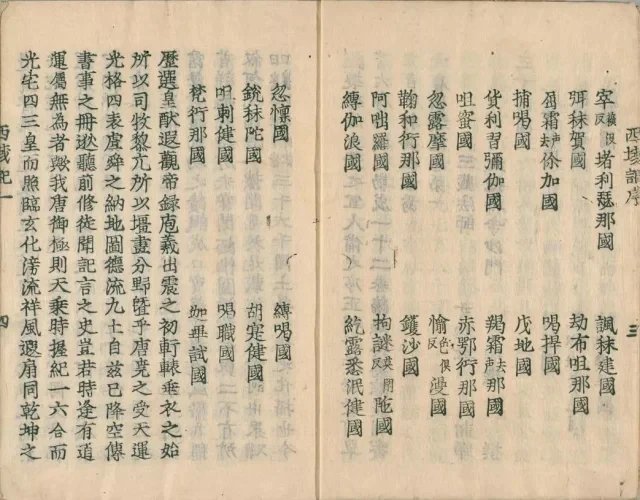 西域記序 三
窣堵利瑟那國 颯秣建國
弭秣賀國 劫布呾那國
屈霜去声你迦國 喝捍國
捕喝國 戊地國
貨利習彌伽國 羯霜去声那國
呾蜜國 赤鄂衍那國
忽露摩國 愉色俱反漫國
鞠和衍那國 鑊沙國
阿咄羅國 拘謎莫閉反陀國
縛伽浪國 紇露悉泯健國
忽懍國 縛喝國
銳秣陀國 胡寔健國
呾剌健國 喝職國
梵衍那國 迦畢試國
歷選皇猷遐觀帝錄庖羲出震之初軒轅垂衣之始
所以司牧黎元所以壃畫分野暨乎唐堯之受天運
光格四表虞舜之納地圖德流九土自茲已降空傳
書事之冊逖聽前修徒聞記言之史豈若時逢有道
運屬無為者歟我唐御極則天乘時握紀一六合而
光宅四三皇而照臨玄化滂流祥風遐扇同乾坤之
西域記一 四